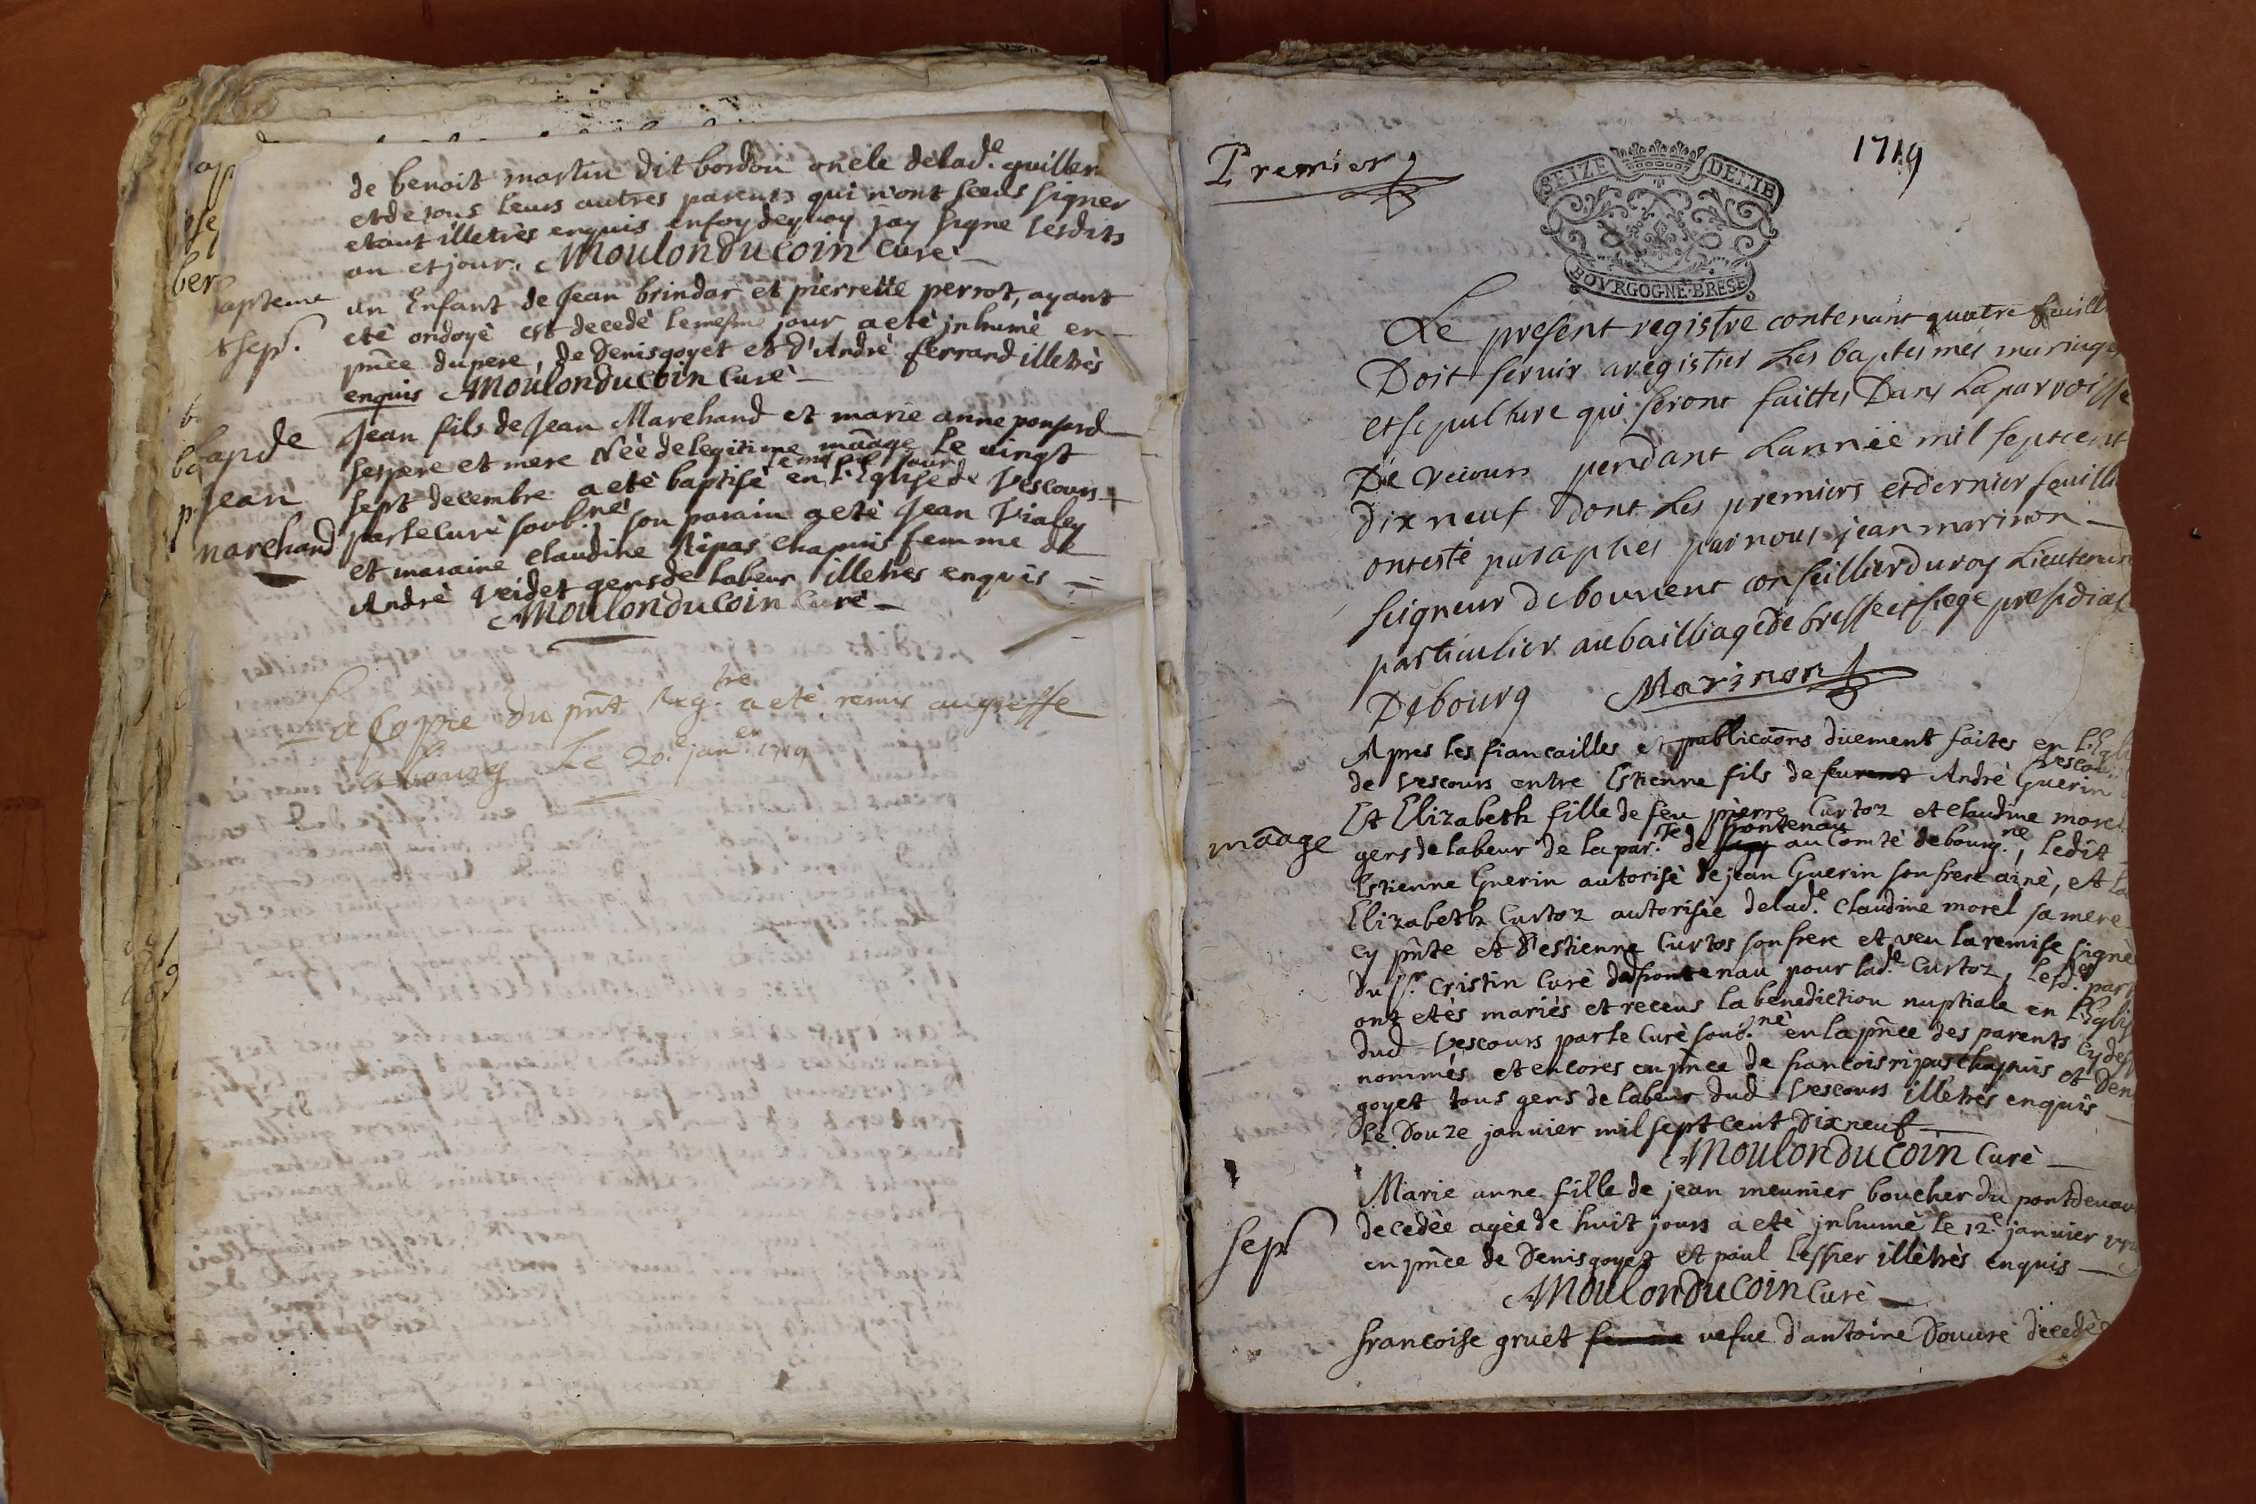 de benoit martin dit bordon oncle delad.e guillem
et de tous leurs autres parents qui n'ont sceus signer
etant illetrès enquis en foy dequoy jay signe lesdits
an et jour. Moulonducoin Curè
bapteme
& sep.
un Enfant de Jean brindar et pierrette perrot, ayant
etè ondoyè est decedè le mesme jour a etè jnhumè en
pñce du pere, de Denis goyet et d'Andrè ferrand illetrès
enquis Moulonducoin Curè
bap de
Jean
marchand
Jean fils de Jean Marchand et marie anne ponsard
ses pere et mere Néè de legitime maãge le vingt
sept decembre a etè baptisè en l'Eglise de Vescours
par le curè soub.né son parain a etè Jean Vialey
et maraine claudine Ripas chapuis femme de
Andrè Veidet gens de labeur illetres enquis
Moulonducoin Curè
La Coppie du pñt Reg.tre a etè remis au greffe
a bourg Le 20.e jan.er 1719
Premier
1719
SEIZE DENIE
BOVRGOGNE·BRESE
Le present registre contenant quatre feuill
Doit servir a registrer Les baptesmes mariage
et sepulture qui seront faittes Dans La parroisse
De Vecours pendant L'annèe mil sept cent
dix neuf Dont Les premiers et dernier feuill
ont estè paraphes par nous jean marinon
seigneur de bouvent conseillier du roy Lieutenan
particulier au bailliage de bresse et siege presidial
De bourg Marinon
Apres les fiancailles et publicaõns duement faites en l'Egli
de Vescours entre Estienne fils de feu Andrè Guerin
Vescou
Et Elizabeth fille de feu pierre Curtoz et claudine morel
maãge
gens de labeur de la par. de frontenau au Comtè de bourg.ne, ledit
Estienne Guerin autorisè de jean Guerin son frere ainè, et la
Elizabeth Curtoz autorisèe delad.e Claudine morel sa mere
cy pñte et d'estienne Curtos son frere et veu la remise signè
du Sr. Cristin Curè de frontenau pour lad.e Curtoz, lesd. part
ont etès mariès et receus la benediction nuptiale en l'Eglis
dud Vescours par le Curè soub.né en la pñce des parents cy des
nommès et encores en pñce de francois ripas chapuis et Den
goyet tous gens de labeur dud Vescours illetrès enquis
Le Douze janvier mil sept cent Dix neuf
Moulonducoin Curè
Sep.
Marie anne fille de jean meunier boucher du pontdevau
decedèe agèe de huit jours a etè jnhumè le 12.e janvier
en pñce de Denis goyet et paul lessier illètrès enquis
Moulonducoin Curè
francoise gruet vefue d'antoine Douure decedèe